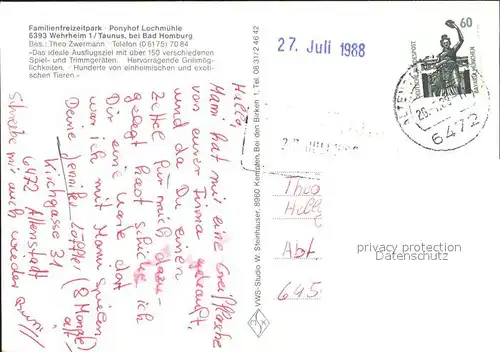 Familienfreizeitpark · Ponyhof Lochmühle
6393 Wehrheim 1/Taunus, bei Bad Homburg
Bes.: Theo Zwermann Telefon (0 61 75) 70 84
«Das ideale Ausflugsziel mit über 150 verschiedenen
Spiel- und Trimmgeräten. Hervorragende Grillmög-
lichkeiten. - Hunderte von einheimischen und exoti-
schen Tieren.»
Hallo,
Mami hat mir eine Greifflasche
von eurer Firma gekauft,
und da Du einen
Zettel für mich dazu-
gelegt hast schicke ich
Dir eine Karte dort
war ich mit Mama spielen
Deine Jennifer
Kirchgasse 31 (8 Monate alt)
6472 Altenstadt
Schreibe mir auch wieder
VWS-Studio W. Steinhäuser, 8960 Kempten, Bei den Birken 1, Tel. 08 31/2 46 42
27. Juli 1988
60
BAVARIA MÜNCHEN
6472
Theo
Abt.
645
privacy protection
watermark